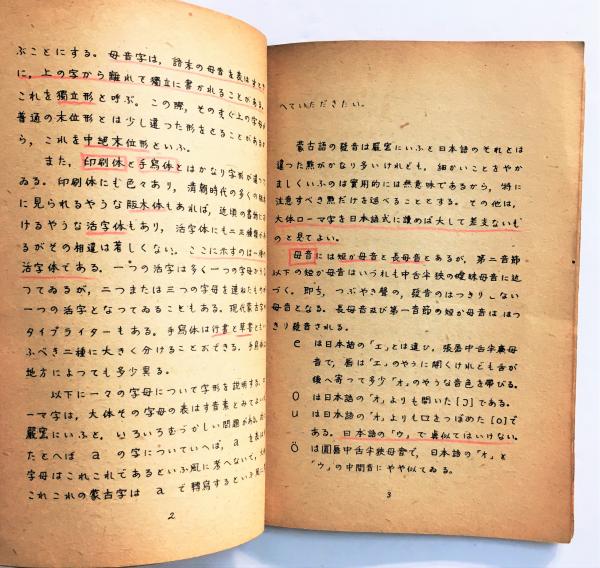 ぶことにする。母音字は，語末の母音を表はすとき
に，上の字から離れて獨立に書かれることがある。
これを獨立形と呼ぶ。この際，そのすぐ上の字母が
普通の末位形とは少し違つた形をとることがあるか
ら，これを中絶末位形といふ。
また，印刷体と手寫体とはかなり字形が違つて
ゐる。印刷体にも色々あり，清朝時代の多くの
に見られるやうな版木体もあれば，近頃の書物に
けるやうな活字体もあり，活字体にも二三種類が
るがその相違は著しくない。ここに示すのは一種の
活字体である。一つの活字は多く一つの字母から
つてゐるが，二つまたは三つの字母を連ねたもの
一つの活字となつてゐることもある。現代蒙古
タイプライターもある。手寫体は行書と草書とも
ふべき二種に大きく分けることができる。手寫体
地方によつても多少異る。
以下に一々の字母について字形を説明する。
ーマ字は，大体その字母の表はす音素とみてよい
嚴密にいふと，いろいろむづかしい問題がある。
たとへば a の字についていへば，a を表は
字母はこれこれであるといふ風に考へないで，
これこれの蒙古字は a で轉寫するといふ風に
2
へていただきたい。
蒙古語の發音は嚴密にいふと日本語のそれとは
違つた點がかなり多いけれども，細かいことをやか
ましくいふのは實用的には無意味であるから，特に
注意すべき點だけを述べることとする。その他は，
大体ローマ字を日本語式に讀めば大して差支ないも
のと見てよい。
母音には短か母音と長母音とあるが，第二音節
以下の短か母音はいづれも中舌半狹の曖昧母音に近
づく。即ち，つぶやき聲の，發音のはつきりしない
母音となる。長母音及び第一音節の短か母音ははつ
きり發音される。
e は日本語の「エ」とは違ひ，張唇中舌半廣母
音で，唇は「エ」のやうに開くけれども舌が
後へ寄つて多少「オ」のやうな音色を帶びる。
o は日本語の「オ」よりも開いた [ɔ] である。
u は日本語の「オ」よりも口をつぼめた [o] で
ある。日本語の「ウ」で眞似てはいけない。
ö は圓唇中舌半狹母音で，日本語の「オ」と
「ウ」の中間音にやや似てゐる。
3